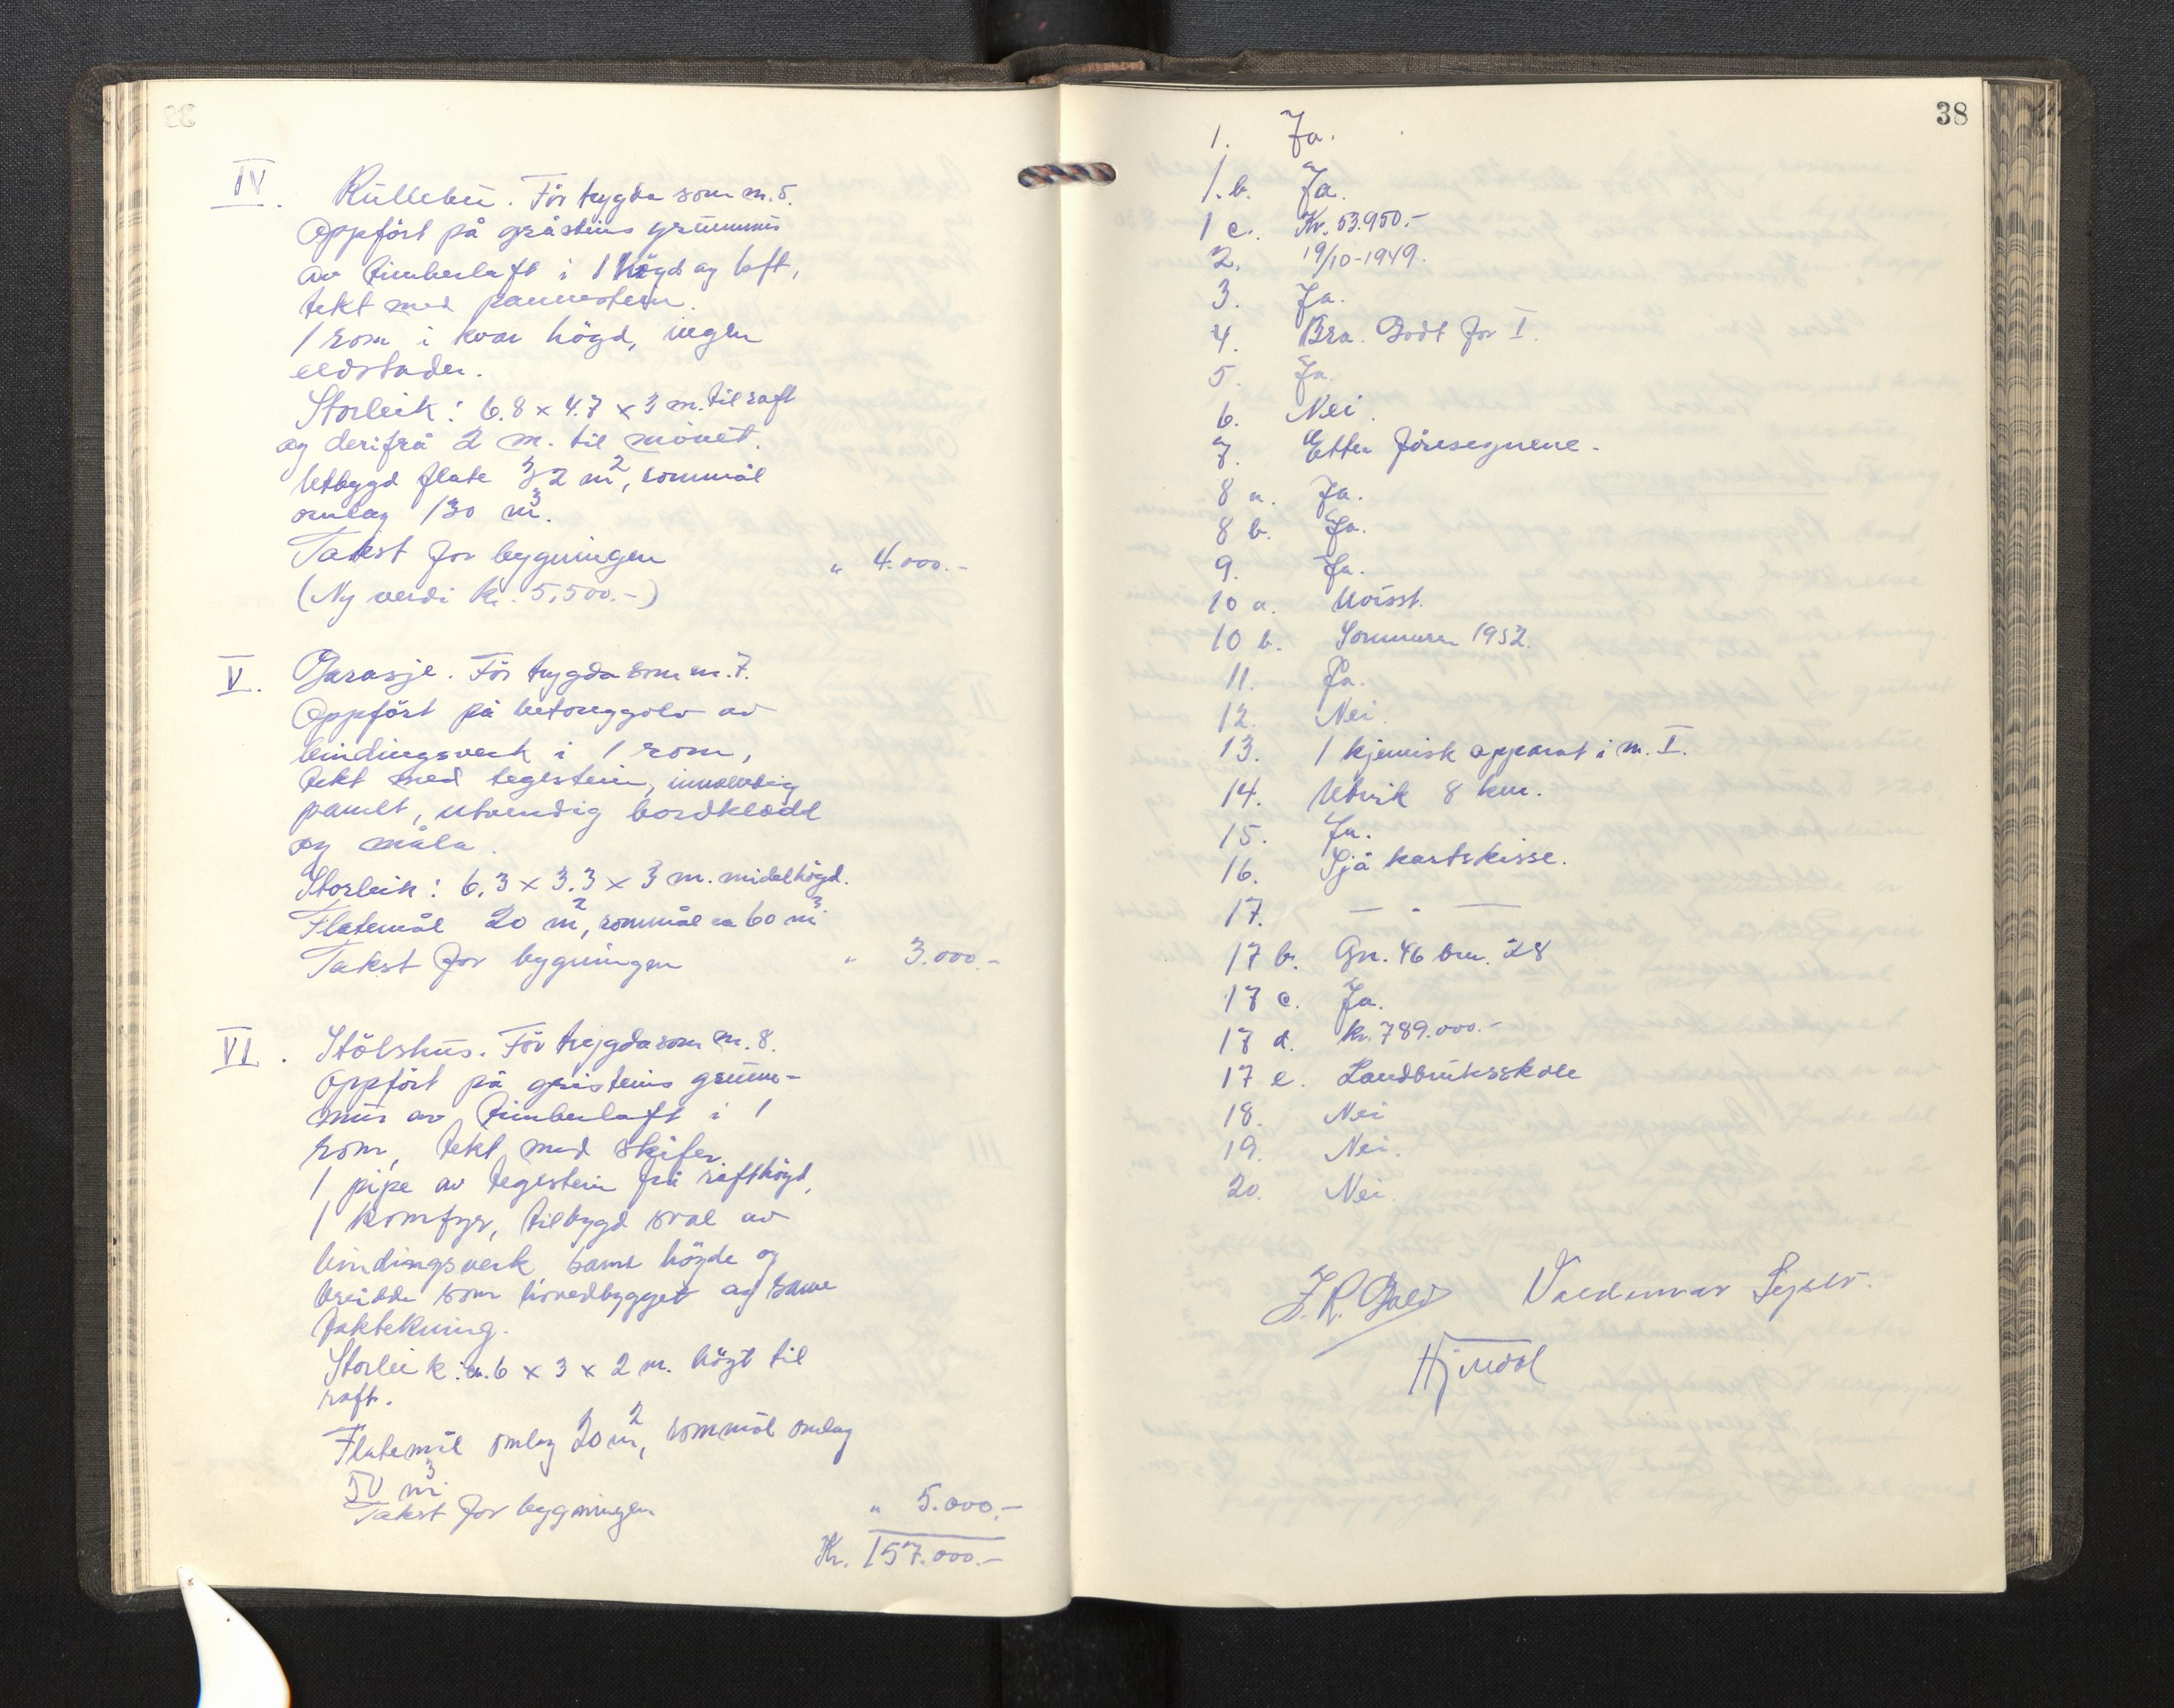 IV. Kullebu. För trygda som m. 5.
Oppfört på gråsteins grunnmur
av timberlaft i 1 högd og loft,
tekt med pannestein.
1 rom i kvar högd, ingen
eldstader.
Storleik: 6.8 x 4.7 x 3 m. til raft
og derifrå 2 m. til mönet.
Utbygd flate 32 m², rommål
omlag 130 m³.
Takst for bygningen " 4.000.-
(Ny verdi kr. 5.500.-)
V. Garasje. För trygda som m. 7.
Oppfört på betonggolv av
bindingsverk i 1 rom,
tekt med teglstein, innvendig
panelt, utvendig bordkledd
og måla.
Storleik: 6.3 x 3.3 x 3 m. midelhögd.
Flatemål 20 m², rommål ca 60 m³.
Takst for bygningen " 3.000.-
VI. Stölshus. För trygda som m. 8.
Oppfört på gråsteins grunn-
mur av timberlaft i 1
rom, tekt med skifer.
1 pipe av teglstein frå rafthögd,
1 komfyr, tilbygd sval av
bindingsverk same högde og
breidde som hovedbygget og same
taktekning.
Storleik: ca. 6 x 3 x 2 m. högt til
raft.
Flatemål omlag 20 m², rommål omlag
50 m³
Takst for bygningen " 5.000.-
Kr. 157.000.-
38
1. Ja.
1.b. Ja.
1 c. Kr. 53.950.-
2. 19/10-1949.
3. Ja.
4. Bra. Godt for I.
5. Ja.
6. Nei.
7. Etter föresegnene.
8 a. Ja.
8 b. Ja.
9. Ja.
10 a. Uvisst.
10 b. Sommeren 1952.
11. Ja.
12. Nei.
13. 1 kjemisk apparat i m. I.
14. Utvik 8 km.
15. Ja.
16. Sjå kartskisse.
17. — " —
17 b. Gn. 46 bn. 28
17 c. Ja.
17 d. kr. 789.000.-
17 e. Landbruksskole
18. Nei
19. Nei.
20. Nei.
Valdemar